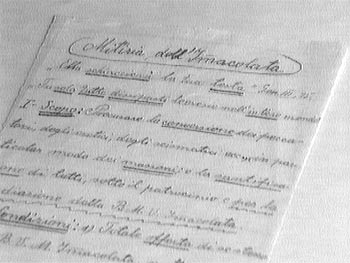 Milizia dell'Immacolata
"Ella schiaccierà la tua testa" Gen III. 15.
tutte disseminate le eresie nell'intero mondo
I- Scopo: Procurare la conversione dei pecca-
tori, degli eretici, degli scismatici ecc. e in par-
ticolar modo dei massoni; e la santifica-
zione di tutti, sotto il patrocinio e per la
mediazione della B. M. V. Immacolata
Condizioni: 1) Totale offerta di se stesso
B. V. M. Immacolata